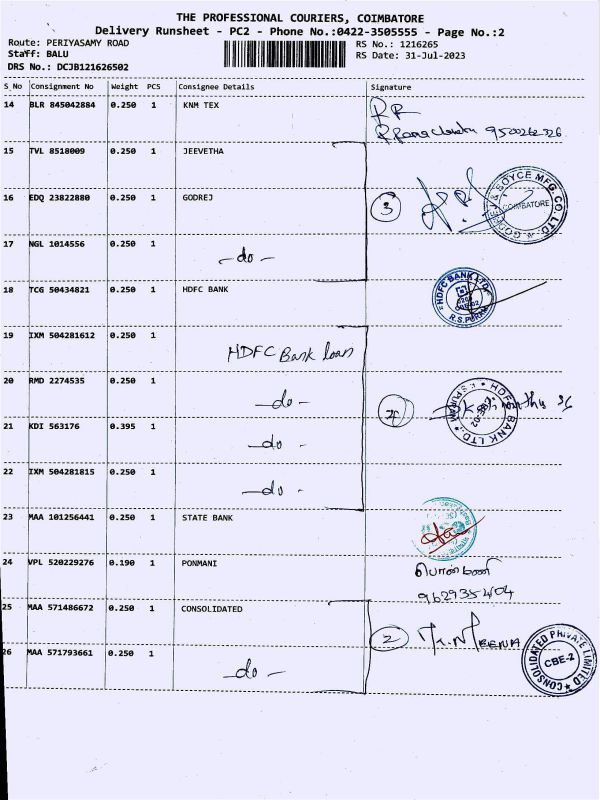 THE PROFESSIONAL COURIERS, COIMBATORE
Delivery Runsheet - PC2 - Phone No.:0422-3505555 - Page No.:2
Route: PERIYASAMY ROAD RS No.: 1216265
Staff: BALU RS Date: 31-Jul-2023
DRS No.: DCJB121626502
S_No Consignment No Weight PCS Consignee Details Signature
14 BLR 845042884 0.250 1 KNM TEX
9500262326
15 TVL 8518009 0.250 1 JEEVETHA
16 EDQ 23822880 0.250 1 GODREJ 3
GODREJ & BOYCE MFG. CO. LTD. COIMBATORE
17 NGL 1014556 0.250 1 -do-
18 TCG 50434821 0.250 1 HDFC BANK
HDFC BANK LTD. R.S.PURAM
19 IXM 504281612 0.250 1 HDFC Bank loan
20 RMD 2274535 0.250 1 -do-
HDFC BANK LTD.,
21 KDI 563176 0.395 1 -do-
22 IXM 504281815 0.250 1 -do-
23 MAA 101256441 0.250 1 STATE BANK
24 VPL 520229276 0.190 1 PONMANI பொன்மணி
9629354404
25 MAA 571486672 0.250 1 CONSOLIDATED 2
CONSOLIDATED PRIVATE LIMITED CBE-2
26 MAA 571793661 0.250 1 -do-